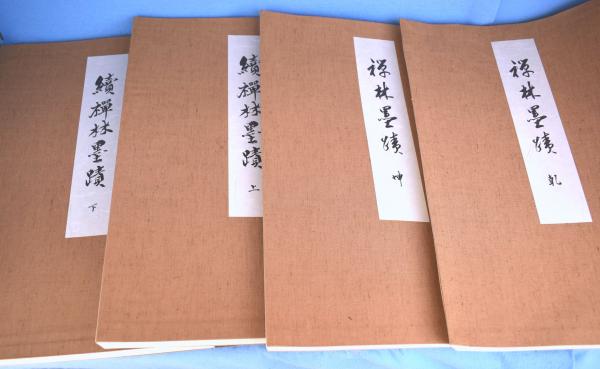 禅林墨蹟 乾
禅林墨蹟 坤
續禪林墨蹟 上
續禪林墨蹟 下